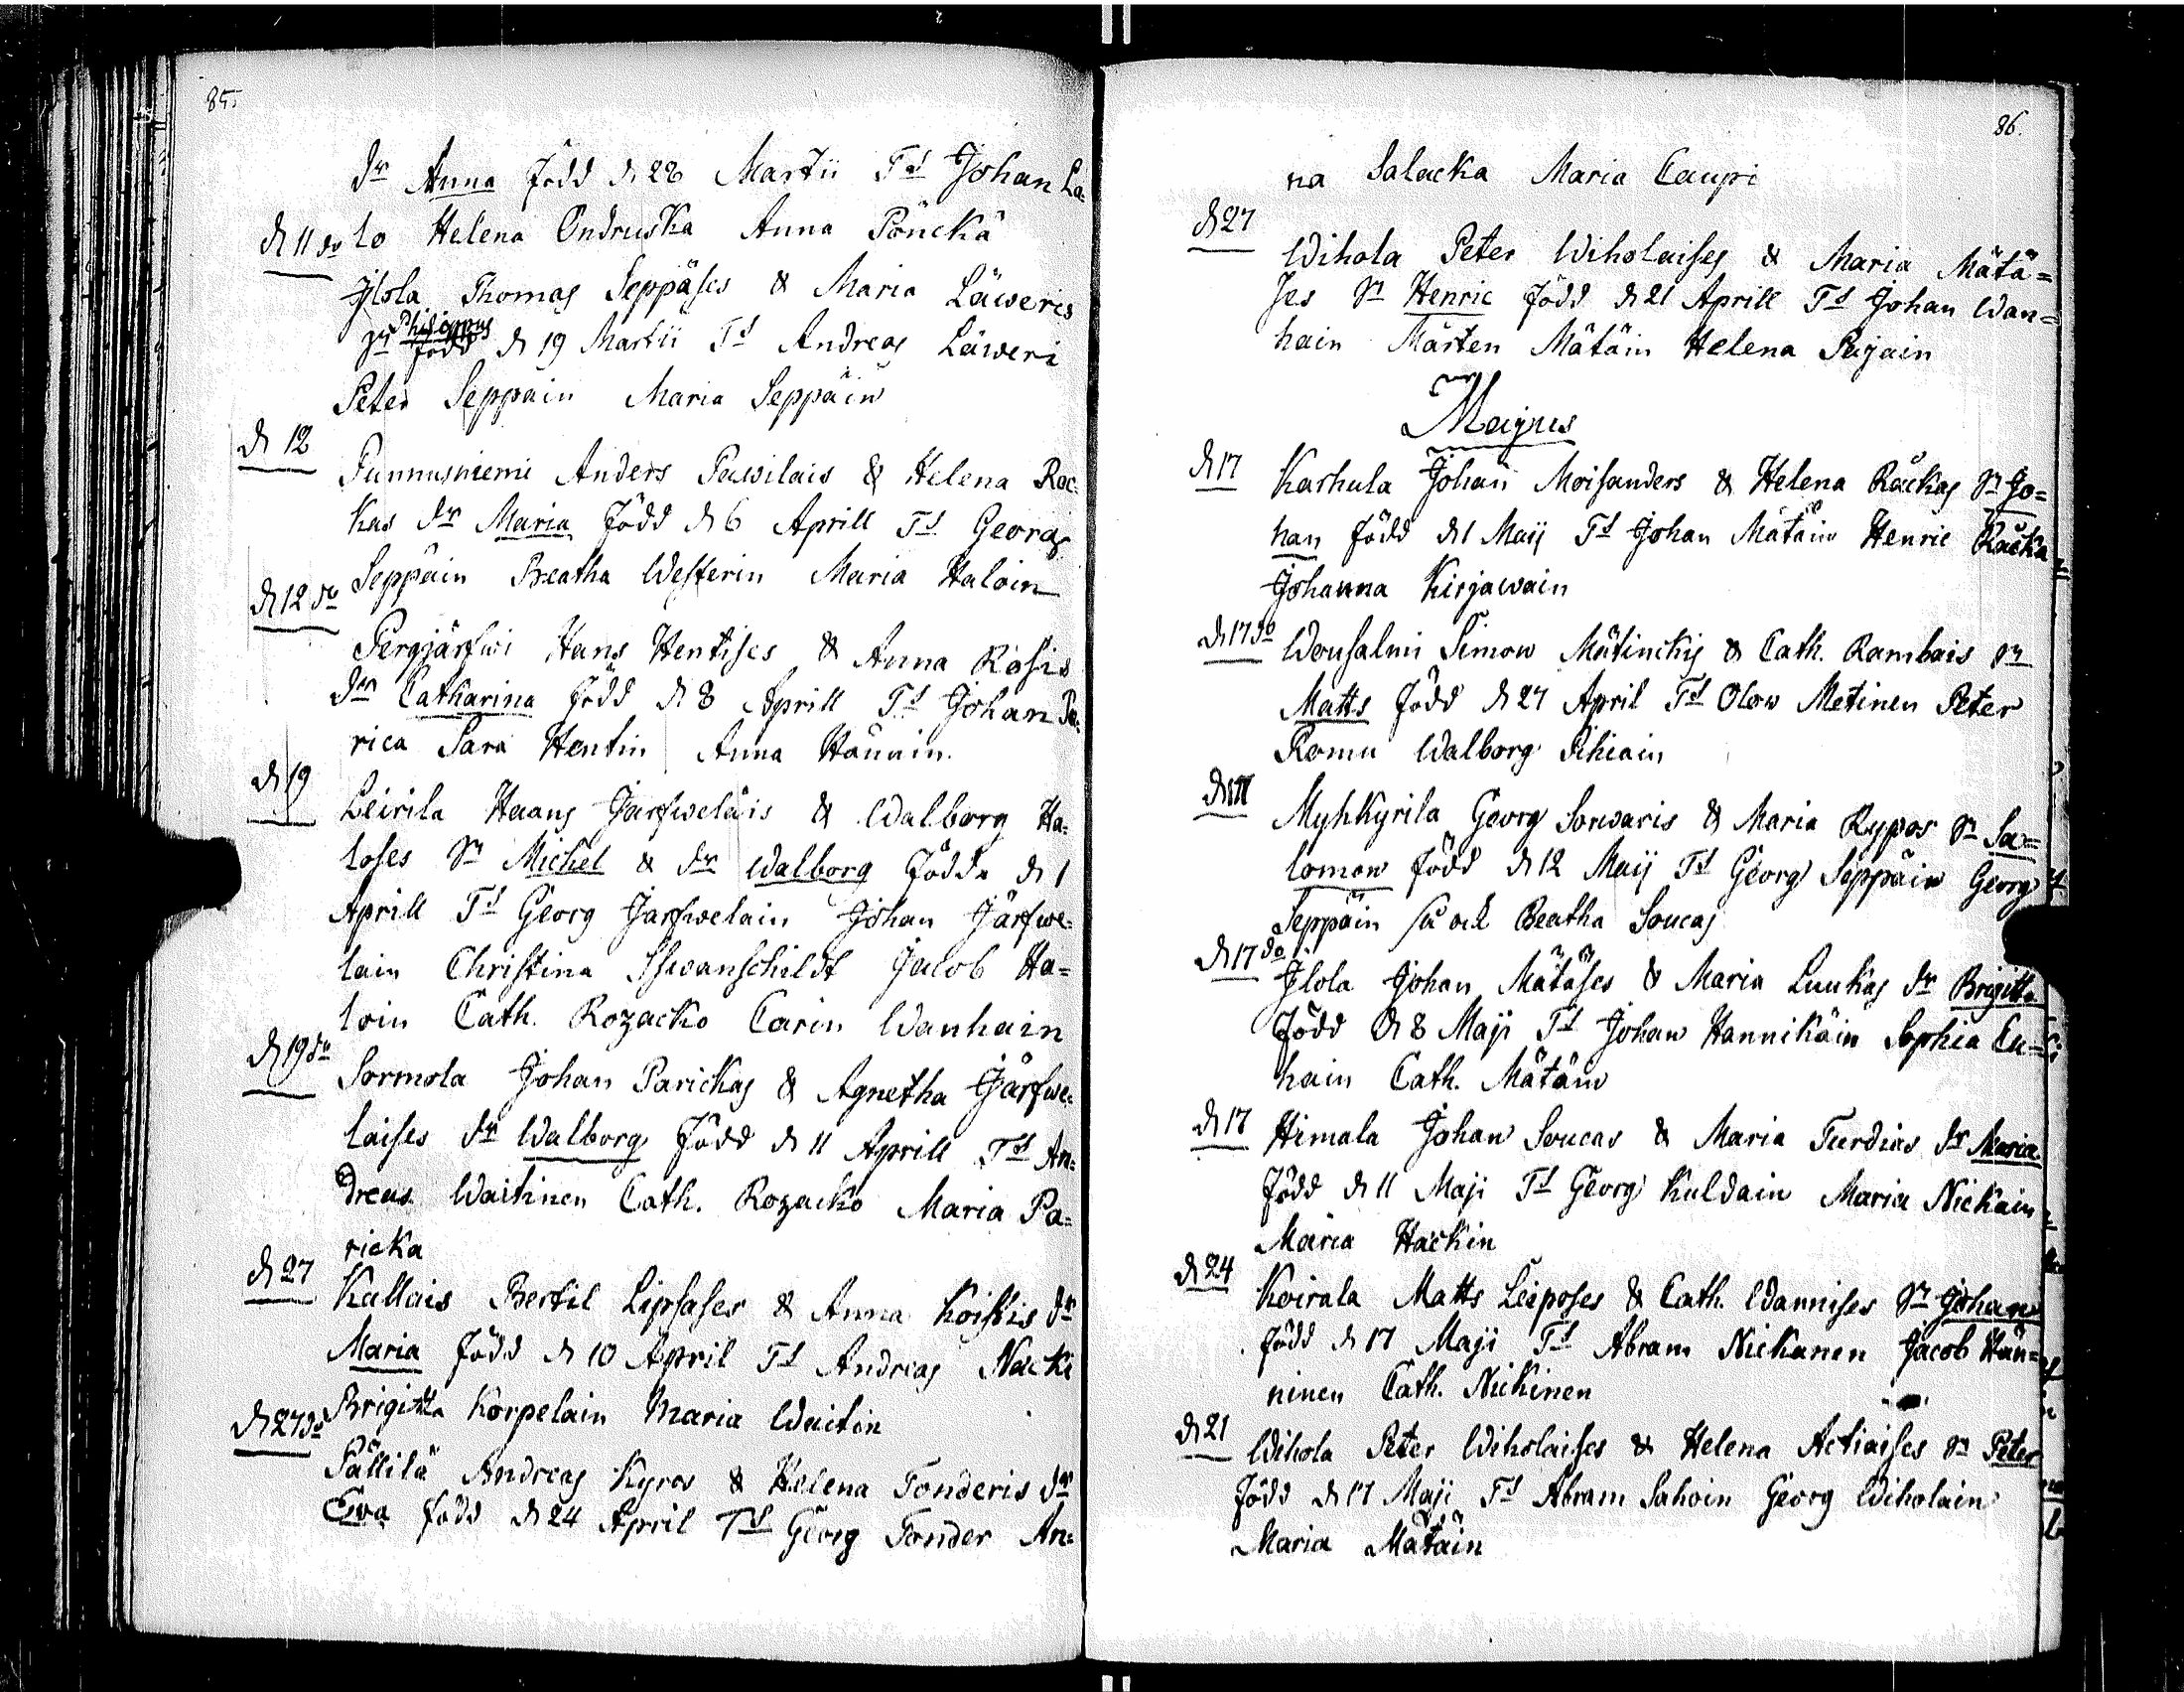 85.
dr Anna Född d 28 Martii Ts Johan La-
d 11 do lo Helena Ondruska Anna Pönckä
Jlola Thomas Seppäses & Maria Läweris
Philippus
Sn Född d 19 Martii Ts Andreas Läweri
Peter Seppäin Maria Seppäin
d 12
Punnusniemi Anders Pawilais & Helena Roc-
kas dr Maria Född d 6 Aprill Ts Georg
Seppäin Breatha Westerin Maria Haloin
d 12 do
Pergjärfwi Hans Hentises & Anna Rosis
dr Catharina Född d 8 Aprill Ts Johan Pa-
rica Sara Hentin Anna Hänäin.
d 19
Leirila Haans Jarfweläis & Walborg Ha-
loses Sn Michel & dr Walborg Födda d 1
Aprill Ts Georg Jarfwelain Johan Järfwe-
lain Christina Schwanschildt Jacob Ha=
loin Cath. Rozacko Carin Wanhain
d 19 do
Sormola Johan Parickas & Agnetha Järfwe-
laises dr Walborg Född d 11 Aprill Ts An-
dreas Waitinen Cath. Rozacko Maria Pa=
ricka
d 27
Kallais Bertil Lipsases & Anna Koistis dr
Maria Född d 10 April Ts Andreas Nacki
Brigitta Korpelain Maria Waitin
d 27 do
Pällilä Andreas Kyros & Helena Tonderis dr
Ewa född d 24 April Ts Georg Tonder An=
86.
na Salacka Maria Caupi
d 27
Wihola Peter Wiholaises & Maria Mätä=
ses Sn Henric Född d 21 Aprill Ts Johan Wan=
hain Mårten Mätäin Helena Pajain
Majus
d 17 Karhula Johan Moisanders & Helena Räckas Sn Jo=
han Född d 1 Maij Ts Johan Mätäin Henric Räcka
Johanna Kirjawain
d 17 do Wousalmi Simon Mätinckis & Cath. Rambais Sn
Matts Född d 27 April Ts Olow Metinen Peter
Romu Walborg Pihiain
d 17 Myhkyrila Georg Sorwaris & Maria Rypos Sn Sa=
lomon Född d 12 Maij Ts Georg Seppäin Georg
Seppäin så ock Beatha Soucas
d 17 do
Jlola Johan Mätäses & Maria Luukas dr Brigitta
Född d 8 Maji Ts Johan Hannikäin Sophia Cu=
hain Cath. Mätäin
d 17 Himala Johan Soucas & Maria Turdias dr Maria
Född d 11 Maji Ts Georg Kuldain Maria Nickain
Maria Hackin
d 24
Koirala Matts Leiposes & Cath. Wannises Sn Johan
Född d 17 Maji Ts Abram Nickanen Jacob Hän=
ninen Cath. Nickinen
d 21
Wihola Peter Wiholaises & Helena Actiaises Sn Peter
Född d 17 Maji Ts Abram Sahoin Georg Wiholain
Maria Mätäin